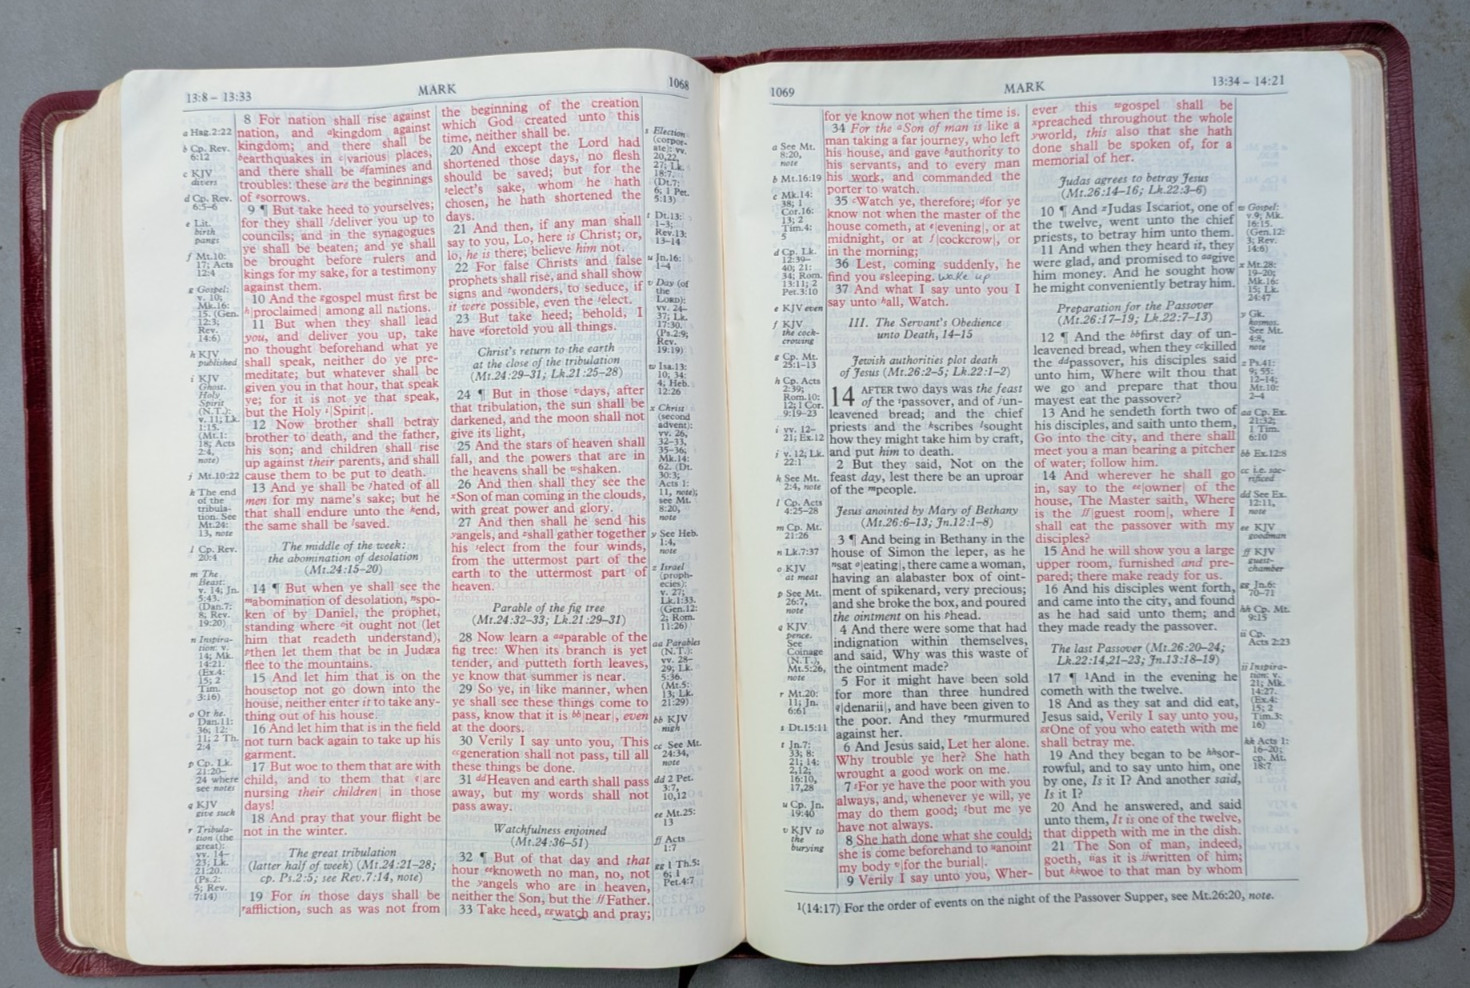 13:8 – 13:33
MARK
1068
a Hag.2:22
b Cp. Rev.
6:12
c KJV
divers
d Cp. Rev.
6:5–6
e Lit.
birth
pangs
f Mt.10:
17; Acts
12:4
g Gospel:
v. 10;
Mk.16:
15. (Gen.
12:3;
Rev.
14:6)
h KJV
published
i KJV
Ghost.
Holy
Spirit
(N.T.):
v. 11; Lk.
1:15.
(Mt.1:
18; Acts
2:4,
note)
j Mt.10:22
k The end
of the
tribula-
tion. See
Mt.24:
13, note
l Cp. Rev.
20:4
m The
Beast:
v. 14; Jn.
5:43.
(Dan.7:
8; Rev.
19:20)
n Inspira-
tion: v.
14; Mk.
14:21.
(Ex.4:
15; 2
Tim.
3:16)
o Or he.
Dan.11:
36; 12:
11; 2 Th.
2:4
p Cp. Lk.
21:20–
24 where
see notes
q KJV
give suck
r Tribula-
tion (the
great):
vv. 14–
25; Lk.
21:20.
(Ps.2:
5; Rev.
7:14)
8 For nation shall rise against
nation, and akingdom against
kingdom; and there shall be
bearthquakes in c|various| places,
and there shall be dfamines and
troubles: these are the beginnings
of esorrows.
9 ¶ But take heed to yourselves;
for they shall fdeliver you up to
councils; and in the synagogues
ye shall be beaten; and ye shall
be brought before rulers and
kings for my sake, for a testimony
against them.
10 And the ggospel must first be
h|proclaimed| among all nations.
11 But when they shall lead
you, and deliver you up, take
no thought beforehand what ye
shall speak, neither do ye pre-
meditate; but whatever shall be
given you in that hour, that speak
ye; for it is not ye that speak,
but the Holy i|Spirit|.
12 Now brother shall betray
brother to death, and the father,
his son; and children shall rise
up against their parents, and shall
cause them to be put to death.
13 And ye shall be jhated of all
men for my name's sake; but he
that shall endure unto the kend,
the same shall be lsaved.
The middle of the week:
the abomination of desolation
(Mt.24:15–20)
14 ¶ But when ye shall see the
mabomination of desolation, nspo-
ken of by Daniel, the prophet,
standing where oit ought not (let
him that readeth understand),
pthen let them that be in Judæa
flee to the mountains.
15 And let him that is on the
housetop not go down into the
house, neither enter it to take any-
thing out of his house.
16 And let him that is in the field
not turn back again to take up his
garment.
17 But woe to them that are with
child, and to them that q|are
nursing their children| in those
days!
18 And pray that your flight be
not in the winter.
The great tribulation
(latter half of week) (Mt.24:21–28;
cp. Ps.2:5; see Rev.7:14, note)
19 For in those days shall be
raffliction, such as was not from
the beginning of the creation
which God created unto this
time, neither shall be.
20 And except the Lord had
shortened those days, no flesh
should be saved; but for the
select's sake, whom he hath
chosen, he hath shortened the
days.
21 And then, if any man shall
say to you, Lo, here is Christ; or,
lo, he is there; believe him not.
22 For false Christs and false
prophets shall rise, and shall show
signs and twonders, to seduce, if
it were possible, even the select.
23 But take heed; behold, I
have uforetold you all things.
Christ's return to the earth
at the close of the tribulation
(Mt.24:29–31; Lk.21:25–28)
24 ¶ But in those vdays, after
that tribulation, the sun shall be
darkened, and the moon shall not
give its light,
25 And the stars of heaven shall
fall, and the powers that are in
the heavens shall be wshaken.
26 And then shall they see the
xSon of man coming in the clouds,
with great power and glory.
27 And then shall he send his
yangels, and zshall gather together
his select from the four winds,
from the uttermost part of the
earth to the uttermost part of
heaven.
Parable of the fig tree
(Mt.24:32–33; Lk.21:29–31)
28 Now learn a aaparable of the
fig tree: When its branch is yet
tender, and putteth forth leaves,
ye know that summer is near.
29 So ye, in like manner, when
ye shall see these things come to
pass, know that it is bb|near|, even
at the doors.
30 Verily I say unto you, This
ccgeneration shall not pass, till all
these things be done.
31 ddHeaven and earth shall pass
away, but my words shall not
pass away.
Watchfulness enjoined
(Mt.24:36–51)
32 ¶ But of that day and that
hour eeknoweth no man, no, not
the yangels who are in heaven,
neither the Son, but the ffFather.
33 Take heed, ggwatch and pray;
s Election
(corpor-
ate): vv.
20,22,
27; Lk.
18:7.
(Dt.7:
6; 1 Pet.
5:13)
t Dt.13:
1–3;
Rev.13:
13–14
u Jn.16:
1–4
v Day (of
the
LORD):
vv. 24–
37; Lk.
17:30.
(Ps.2:9;
Rev.
19:19)
w Isa.13:
10; 34:
4; Heb.
12:26
x Christ
(second
advent):
vv. 26,
32–33,
35–36;
Mk.14:
62. (Dt.
30:3;
Acts 1:
11, note);
see Mt.
8:20,
note
y See Heb.
1:4,
note
z Israel
(proph-
ecies):
v. 27;
Lk.1:33.
(Gen.12:
2; Rom.
11:26)
aa Parables
(N.T.):
vv. 28–
29; Lk.
5:36.
(Mt.5:
13; Lk.
21:29)
bb KJV
nigh
cc See Mt.
24:34,
note
dd 2 Pet.
3:7,
10,12
ee Mt.25:
13
ff Acts
1:7
gg 1 Th.5:
6; 1
Pet.4:7
1069
MARK
13:34 – 14:21
a See Mt.
8:20,
note
b Mt.16:19
c Mk.14:
38; 1
Cor.16:
13; 2
Tim.4:
5
d Cp. Lk.
12:39–
40; 21:
34; Rom.
13:11; 2
Pet.3:10
e KJV even
f KJV
the cock-
crowing
g Cp. Mt.
25:1–13
h Cp. Acts
2:39;
Rom.10:
12; 1 Cor.
9:19–23
i vv. 12–
21; Ex.12
j v. 12; Lk.
22:1
k See Mt.
2:4, note
l Cp. Acts
4:25–28
m Cp. Mt.
21:26
n Lk.7:37
o KJV
at meat
p See Mt.
26:7,
note
q KJV
pence.
See
Coinage
(N.T.),
Mt.5:26,
note
r Mt.20:
11; Jn.
6:61
s Dt.15:11
t Jn.7:
33; 8:
21; 14:
2,12;
16:10,
17,28
u Cp. Jn.
19:40
v KJV to
the
burying
for ye know not when the time is.
34 For the aSon of man is like a
man taking a far journey, who left
his house, and gave bauthority to
his servants, and to every man
his work, and commanded the
porter to watch.
35 cWatch ye, therefore; dfor ye
know not when the master of the
house cometh, at e|evening|, or at
midnight, or at f|cockcrow|, or
in the morning;
36 Lest, coming suddenly, he
find you gsleeping. wake up
37 And what I say unto you I
say unto hall, Watch.
III. The Servant's Obedience
unto Death, 14–15
Jewish authorities plot death
of Jesus (Mt.26:2–5; Lk.22:1–2)
14 AFTER two days was the feast
of the ipassover, and of jun-
leavened bread; and the chief
priests and the kscribes lsought
how they might take him by craft,
and put him to death.
2 But they said, Not on the
feast day, lest there be an uproar
of the mpeople.
Jesus anointed by Mary of Bethany
(Mt.26:6–13; Jn.12:1–8)
3 ¶ And being in Bethany in the
house of Simon the leper, as he
nsat o|eating|, there came a woman,
having an alabaster box of oint-
ment of spikenard, very precious;
and she broke the box, and poured
the ointment on his phead.
4 And there were some that had
indignation within themselves,
and said, Why was this waste of
the ointment made?
5 For it might have been sold
for more than three hundred
q|denarii|, and have been given to
the poor. And they rmurmured
against her.
6 And Jesus said, Let her alone.
Why trouble ye her? She hath
wrought a good work on me.
7 sFor ye have the poor with you
always, and, whenever ye will, ye
may do them good; tbut me ye
have not always.
8 She hath done what she could;
she is come beforehand to uanoint
my body v|for the burial|.
9 Verily I say unto you, Wher-
ever this wgospel shall be
xpreached throughout the whole
yworld, this also that she hath
done shall be spoken of, for a
memorial of her.
Judas agrees to betray Jesus
(Mt.26:14–16; Lk.22:3–6)
10 ¶ And zJudas Iscariot, one of
the twelve, went unto the chief
priests, to betray him unto them.
11 And when they heard it, they
were glad, and promised to aagive
him money. And he sought how
he might conveniently betray him.
Preparation for the Passover
(Mt.26:17–19; Lk.22:7–13)
12 ¶ And the bbfirst day of un-
leavened bread, when they cckilled
the ddpassover, his disciples said
unto him, Where wilt thou that
we go and prepare that thou
mayest eat the passover?
13 And he sendeth forth two of
his disciples, and saith unto them,
Go into the city, and there shall
meet you a man bearing a pitcher
of water; follow him.
14 And wherever he shall go
in, say to the ee|owner| of the
house, The Master saith, Where
is the ff|guest room|, where I
shall eat the passover with my
disciples?
15 And he will show you a large
upper room, furnished and pre-
pared; there make ready for us.
16 And his disciples went forth,
and came into the city, and found
as he had said unto them; and
they made ready the passover.
The last Passover (Mt.26:20–24;
Lk.22:14,21–23; Jn.13:18–19)
17 ¶ 1And in the evening he
cometh with the twelve.
18 And as they sat and did eat,
Jesus said, Verily I say unto you,
ggOne of you who eateth with me
shall betray me.
19 And they began to be hhsor-
rowful, and to say unto him, one
by one, Is it I? And another said,
Is it I?
20 And he answered, and said
unto them, It is one of the twelve,
that dippeth with me in the dish.
21 The Son of man, indeed,
goeth, iias it is jjwritten of him;
but kkwoe to that man by whom
w Gospel:
v.9; Mk.
16:15.
(Gen.12:
3; Rev.
14:6)
x Mt.28:
19–20;
Mk.16:
15; Lk.
24:47
y Gk.
kosmos.
See Mt.
4:8,
note
z Ps.41:
9; 55:
12–14;
Mt.10:
2–4
aa Cp. Ex.
21:32;
1 Tim.
6:10
bb Ex.12:8
cc i.e. sac-
rificed
dd See Ex.
12:11,
note
ee KJV
goodman
ff KJV
guest-
chamber
gg Jn.6:
70–71
hh Cp. Mt.
9:15
ii Cp.
Acts 2:23
jj Inspira-
tion: v.
21; Mk.
14:27.
(Ex.4:
15; 2
Tim.3:
16)
kk Acts 1:
16–20;
cp. Mt.
18:7
1(14:17) For the order of events on the night of the Passover Supper, see Mt.26:20, note.